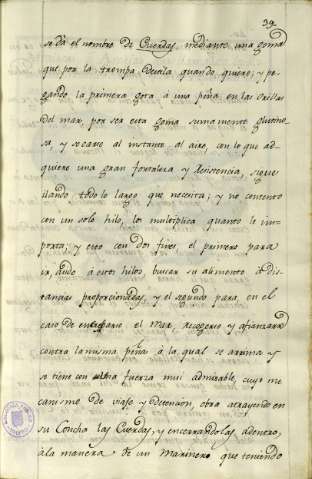 39
se dá el nombre de Cuerdas, mediante una goma
que por la trompa destila quando quiere; y pe-
gando la primera gota á una peña en las orillas
del mar, por ser esta goma sumamente glutino-
sa, y secarse al instante al aire, con lo que ad-
quiere una gran fortaleza y Resistencia, sigue
llando todo lo largo que necesita; y no contento
con un solo hilo, los multiplica quanto le im-
porta; y esto con dos fines el primero para
ir, asido á estos hilos, buscar su alimento á dis-
tancias proporcionadas, y el segundo para, en el
caso de el Mar, recogerse y afianzarse
contra la misma peña á la qual se arrima y
se tiene con una fuerza mui admirable, cuyo me-
canismo de viaje y detencion, obra atrayendo en
su Concha las Cuerdas, y encerrandolas adentro,
á la manera de un Marinero que teniendo